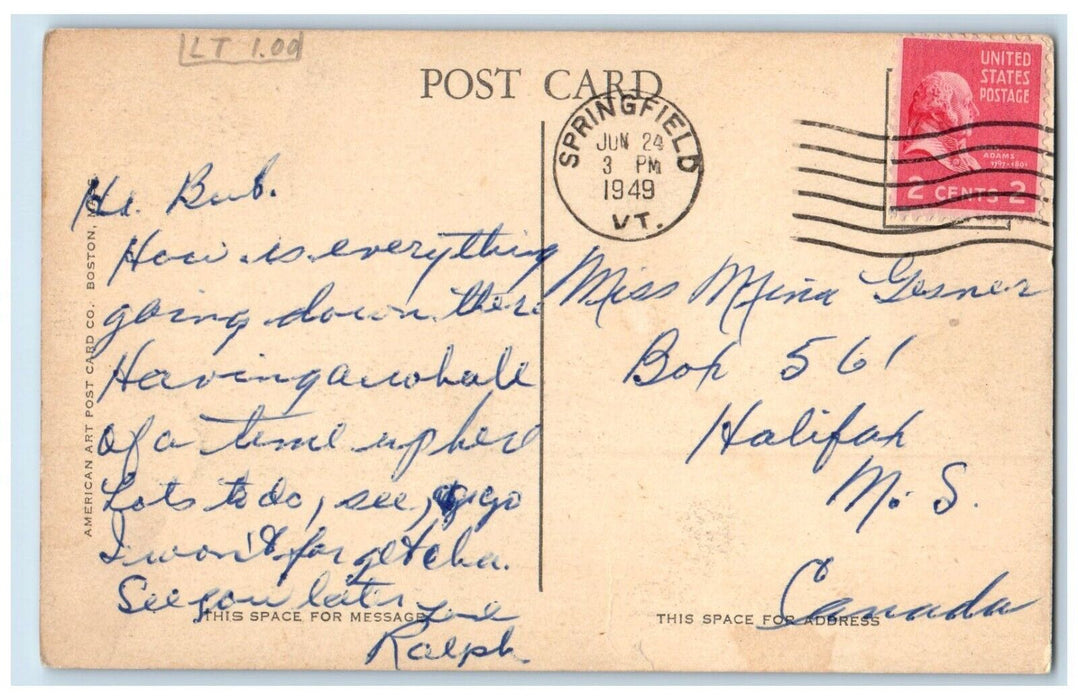 LT 1.00
POST CARD
SPRINGFIELD
JUN 24
3 PM
1949
VT.
UNITED
STATES
POSTAGE
ADAMS
1797-1801
2 CENTS 2
AMERICAN ART POST CARD CO. BOSTON,
Hi. Bub.
How is everything
going down there
Having a whale
of a time up here
Lots to do, see, go
I won't forgetcha.
See you later
Love
Ralph.
Miss Mina Gesner
Box 561
Halifax
N. S.
Canada
THIS SPACE FOR MESSAGE
THIS SPACE FOR ADDRESS